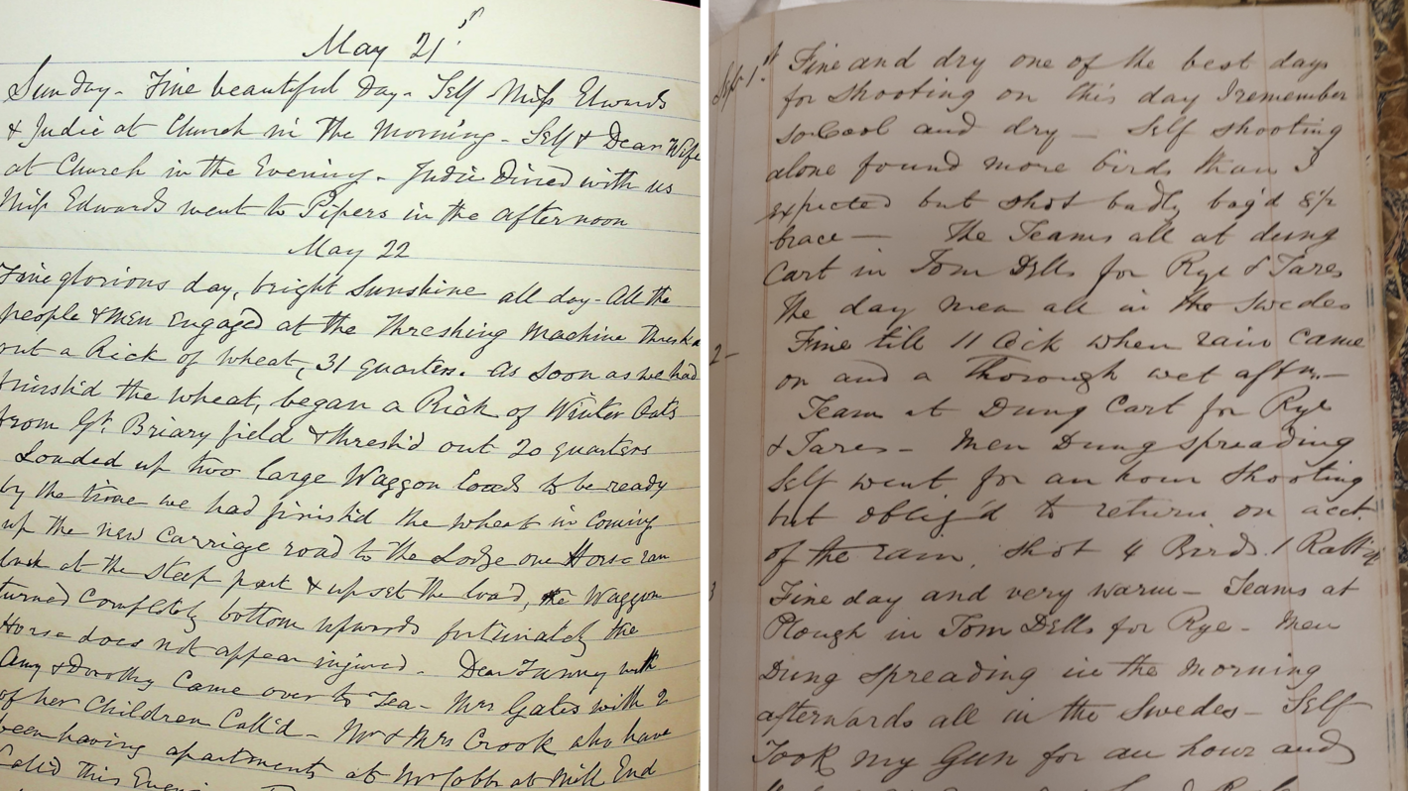 May 21st
Sunday - Fine beautiful day - Self Miss Edwards
& Judie at Church in the Morning - Self & Dear Wife
at Church in the Evening - Judie Dined with us
Miss Edwards went to Pipers in the afternoon
May 22
Fine glorious day, bright Sunshine all day - All the
people & Men Engaged at the Threshing Machine Thresh
out a Rick of Wheat, 31 quarters. As Soon as we had
finish'd the wheat, began a Rick of Winter Oats
from Gt. Briary field & thresh'd out 20 quarters
Loaded up two large Waggon loads to be ready
by the time we had finish'd the wheat in Coming
up the new Carrige road to the Lodge one Horse ran
back at the steep part & upset the load, the Waggon
turned Completely bottom upwards fortunately the
Horse does not appear injured - Dear Fanny with
Amy & Dorothy Came over to Tea - Mrs Gates with 2
of her Children Call'd - Mr & Mrs Crook who have
been having apartments at Mr Cobb at Mill End
Call'd this
Sep 1st Fine and dry one of the best days
for shooting on this day I remember
so Cool and dry - Self shooting
alone found more birds than I
expected but shot badly bag'd 8½
brace - The Teams all at dung
Cart in Tom Dells for Rye & Tares
The day men all in the Swedes
2 - Fine till 11 Oclck when rain came
on and a Thorough wet aftn. -
Team at Dung Cart for Rye
& Tares - Men Dung spreading
Self went for an hour Shooting
but oblig'd to return on acct.
of the rain, shot 4 Birds. 1
3 Fine day and very warm - Teams at
Plough in Tom Dells for Rye - Men
Dung spreading in the Morning
afterwards all in the Swedes - Self
Took my Gun for an hour and